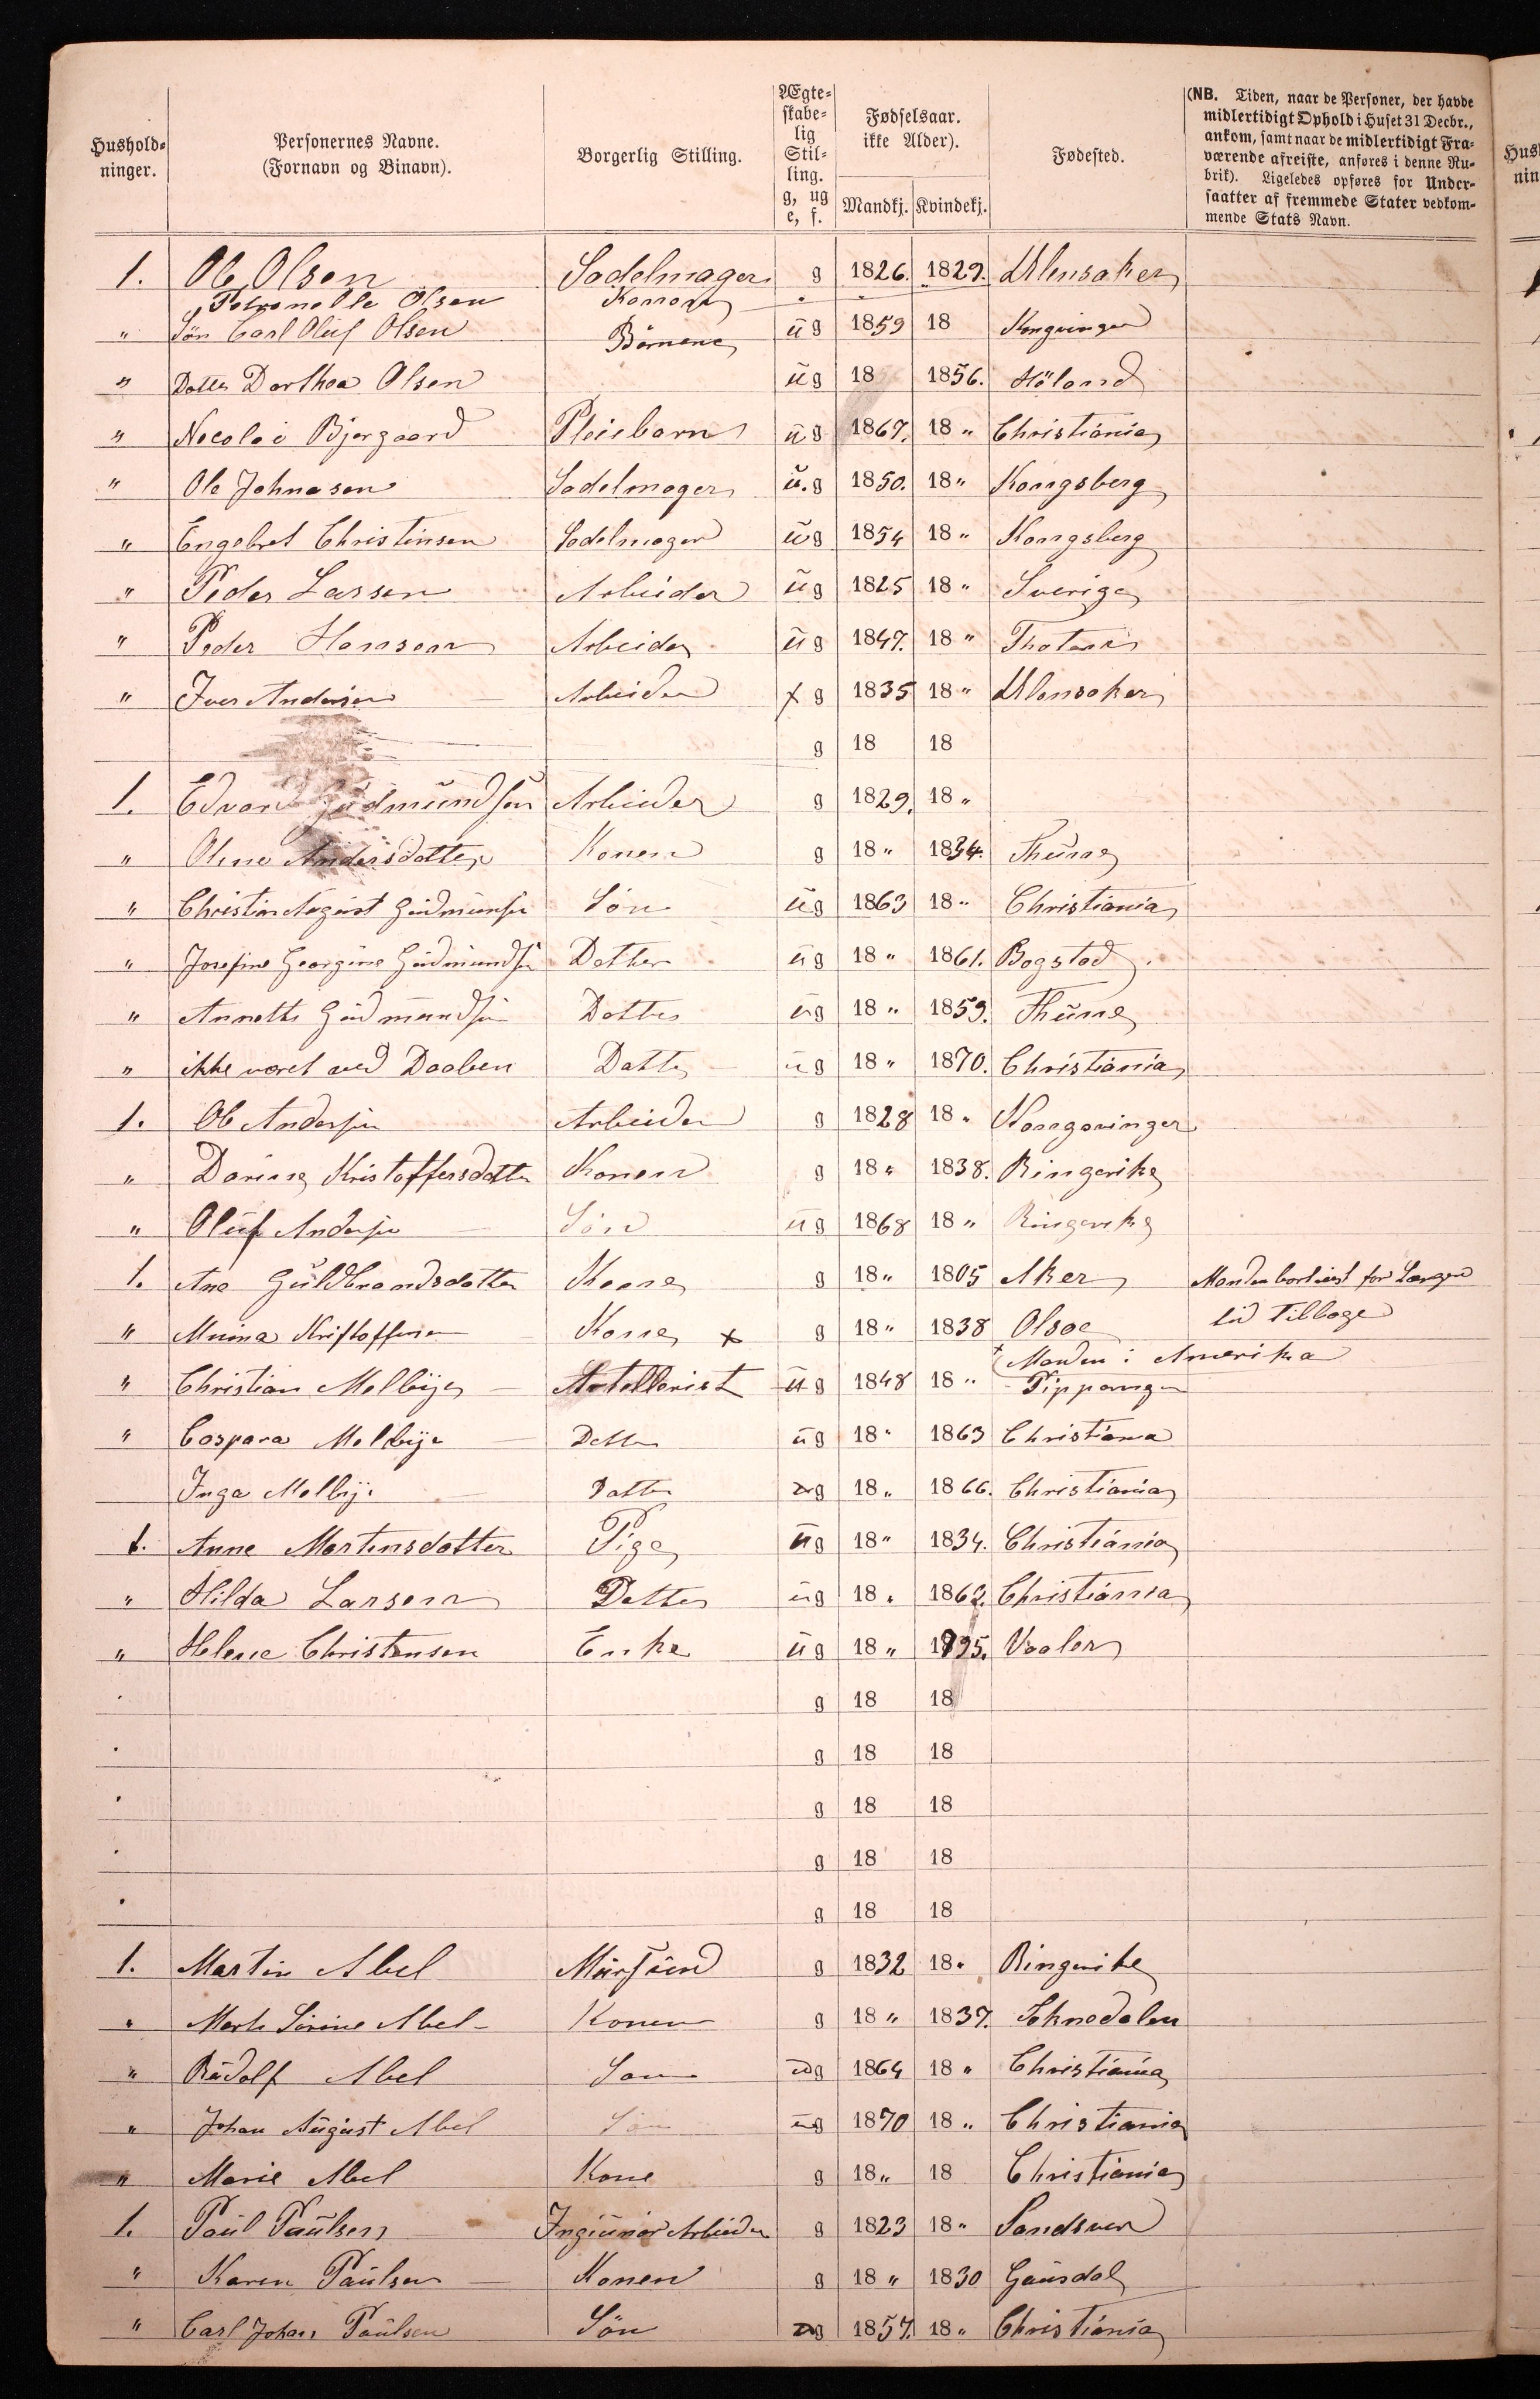 Hushold-
ninger.
Personernes Navne.
(Fornavn og Binavn).
Borgerlig Stilling.
Ægte-
skabe-
lig
Stil-
ling.
g, ug
e, f.
Fødselsaar.
ikke Alder).
Mandkj. Kvindekj.
Fødested.
(NB. Tiden, naar de Personer, der havde
midlertidigt Ophold i Huset 31 Decbr.,
ankom, samt naar de midlertidigt Fra-
værende afreiste, anføres i denne Ru-
brik). Ligeledes opføres for Under-
saatter af fremmede Stater vedkom-
mende Stats Navn.
1. Ole Olsen Sadelmager g 1826. 1829. Ullensaker
Petronelle Olsen Konen
" Søn Carl Oluf Olsen Børnene ug 1859 18 Kongvinger
" Datter Dorthea Olsen ug 18 1856. Høland
" Nocolai Bjergaard Pleiebarn ug 1867. 18 " Christiania
" Ole Johnasen Sadelmager u.g 1850. 18 " Kongsberg
" Engebret Christinsen Sadelmager ug 1854 18 " Kongsberg
" Peder Larsen Arbeider ug 1825 18 " Sverige
" Peder Hansen Arbeider ug 1847. 18 " Thoten
" Iver Andersen Arbeider f g 1835 18 " Ullensaker
g 18 18
1. Edvard Gudmundsen Arbeider g 1829. 18 "
" Oline Andersdatter Konen g 18 " 1834. Thune
" Christian August Gudmunsen Søn ug 1863 18 " Christiania
" Josefine Georgine Gudmundsen Datter ug 18 " 1861. Bogstad
" Annette Gudmundsen Datter ug 18 " 1859. Thune
" ikke været ved Daaben Datter ug 18 " 1870. Christiania
1. Ole Andersen Arbeider g 1828 18 " Kongsvinger
" Dorina Kristoffersdatter Konen g 18 " 1838. Ringerike
" Oluf Andersen Søn ug 1868 18 " Ringerike
1. Ane Guldbrandsdatter Kone g 18 " 1805 Aker Manden bortreist for Længere
tid tilbage
" Minna Kristoffersen Kone x g 18 " 1838 Olsoe
x Manden i Amerika
" Christian Melbye Artellerist ug 1848 18 " Pippervigen
" Caspara Melbye Datter ug 18 " 1863 Christiana
Inga Melbye Datter ug 18 " 1866. Christiania
1. Anne Martensdatter Pige ug 18 " 1834. Christiania
" Hilda Larsen Datter ug 18 " 1862. Christiania
" Helene Christensen Enke ug 18 " 1795. Vaaler
g 18 18
g 18 18
g 18 18
g 18 18
g 18 18
1. Martin Abel Mursvend g 1832 18 " Ringerike
" Marte Sirine Abel Konen g 18 " 1837. Soknedalen
" Rudolf Abel Søn ug 1864 18 " Christiania
" Johan August Abel Søn ug 1870 18 " Christiania
" Marie Abel Kone g 18 " 18 Christiania
1. Paul Paulsen Ingiuniør Arbeider g 1823 18 " Sandsver
" Karen Paulsen Konen g 18 " 1830 Gausdal
" Carl Johan Paulsen Søn ug 1857. 18 " Christiania